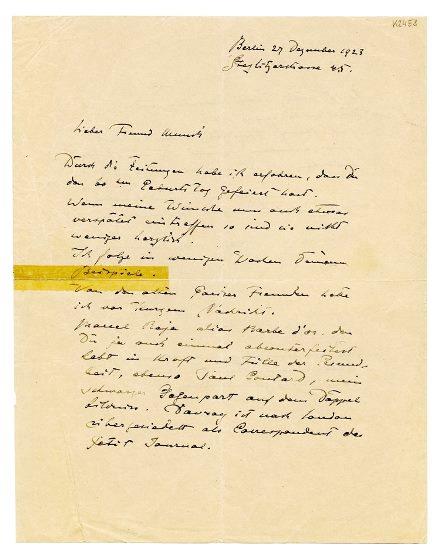 K2453
Berlin 27 Dezember 1923
Steglitzerstrasse 45.
Lieber Freund Munch
Durch die Zeitungen habe ich erfahren, dass Du
den 60 ten Geburtstag gefeiert hast.
Wenn meine Wünsche nun auch etwas
verspätet eintreffen so sind sie nicht
weniger herzlich.
Ich folge in wenigen Wochen Deinem
Beispiele.
Von den alten Pariser Freunden habe
ich vor kurzem Nachricht.
Marcel alias Barbe d'or, den
Du ja auch einmal abconterfeitest
lebt in Kraft und Fülle der Gesund-
heit, ebenso Paul, mein
schwarzer Gegenpart auf dem Doppel
bildniss. Davray ist nach London
übergesiedelt als Correspondent des
Petit Journal.